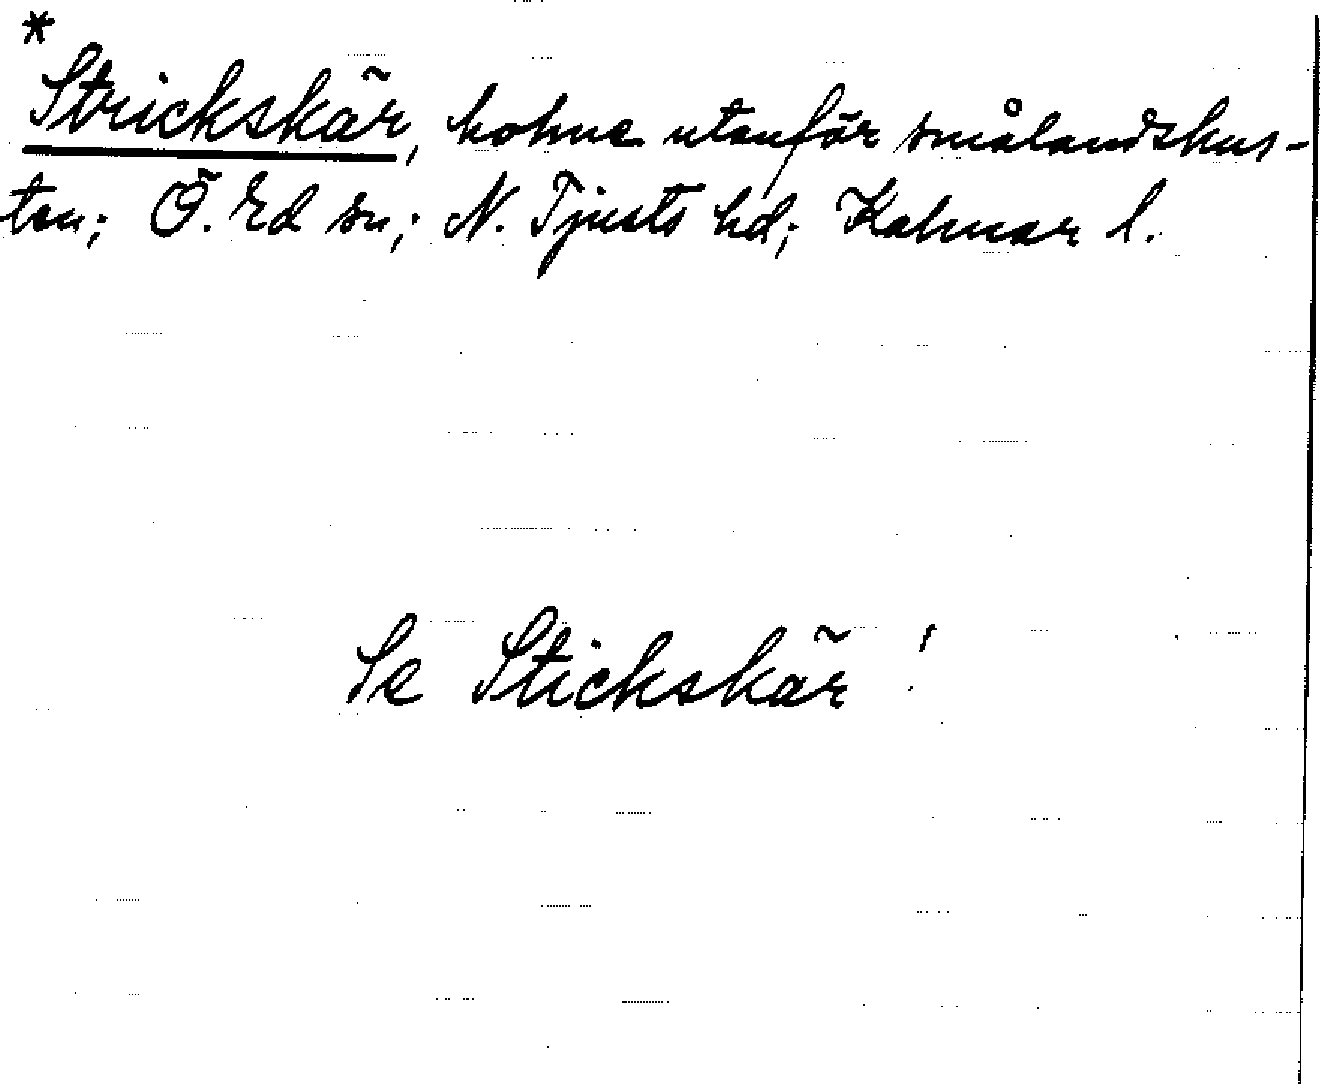 *
Strickskär, holme utanför smålandskus-
ten; Ö. Ed sn; N. Tjusts hd; Kalmar l.
Se Stickskär!